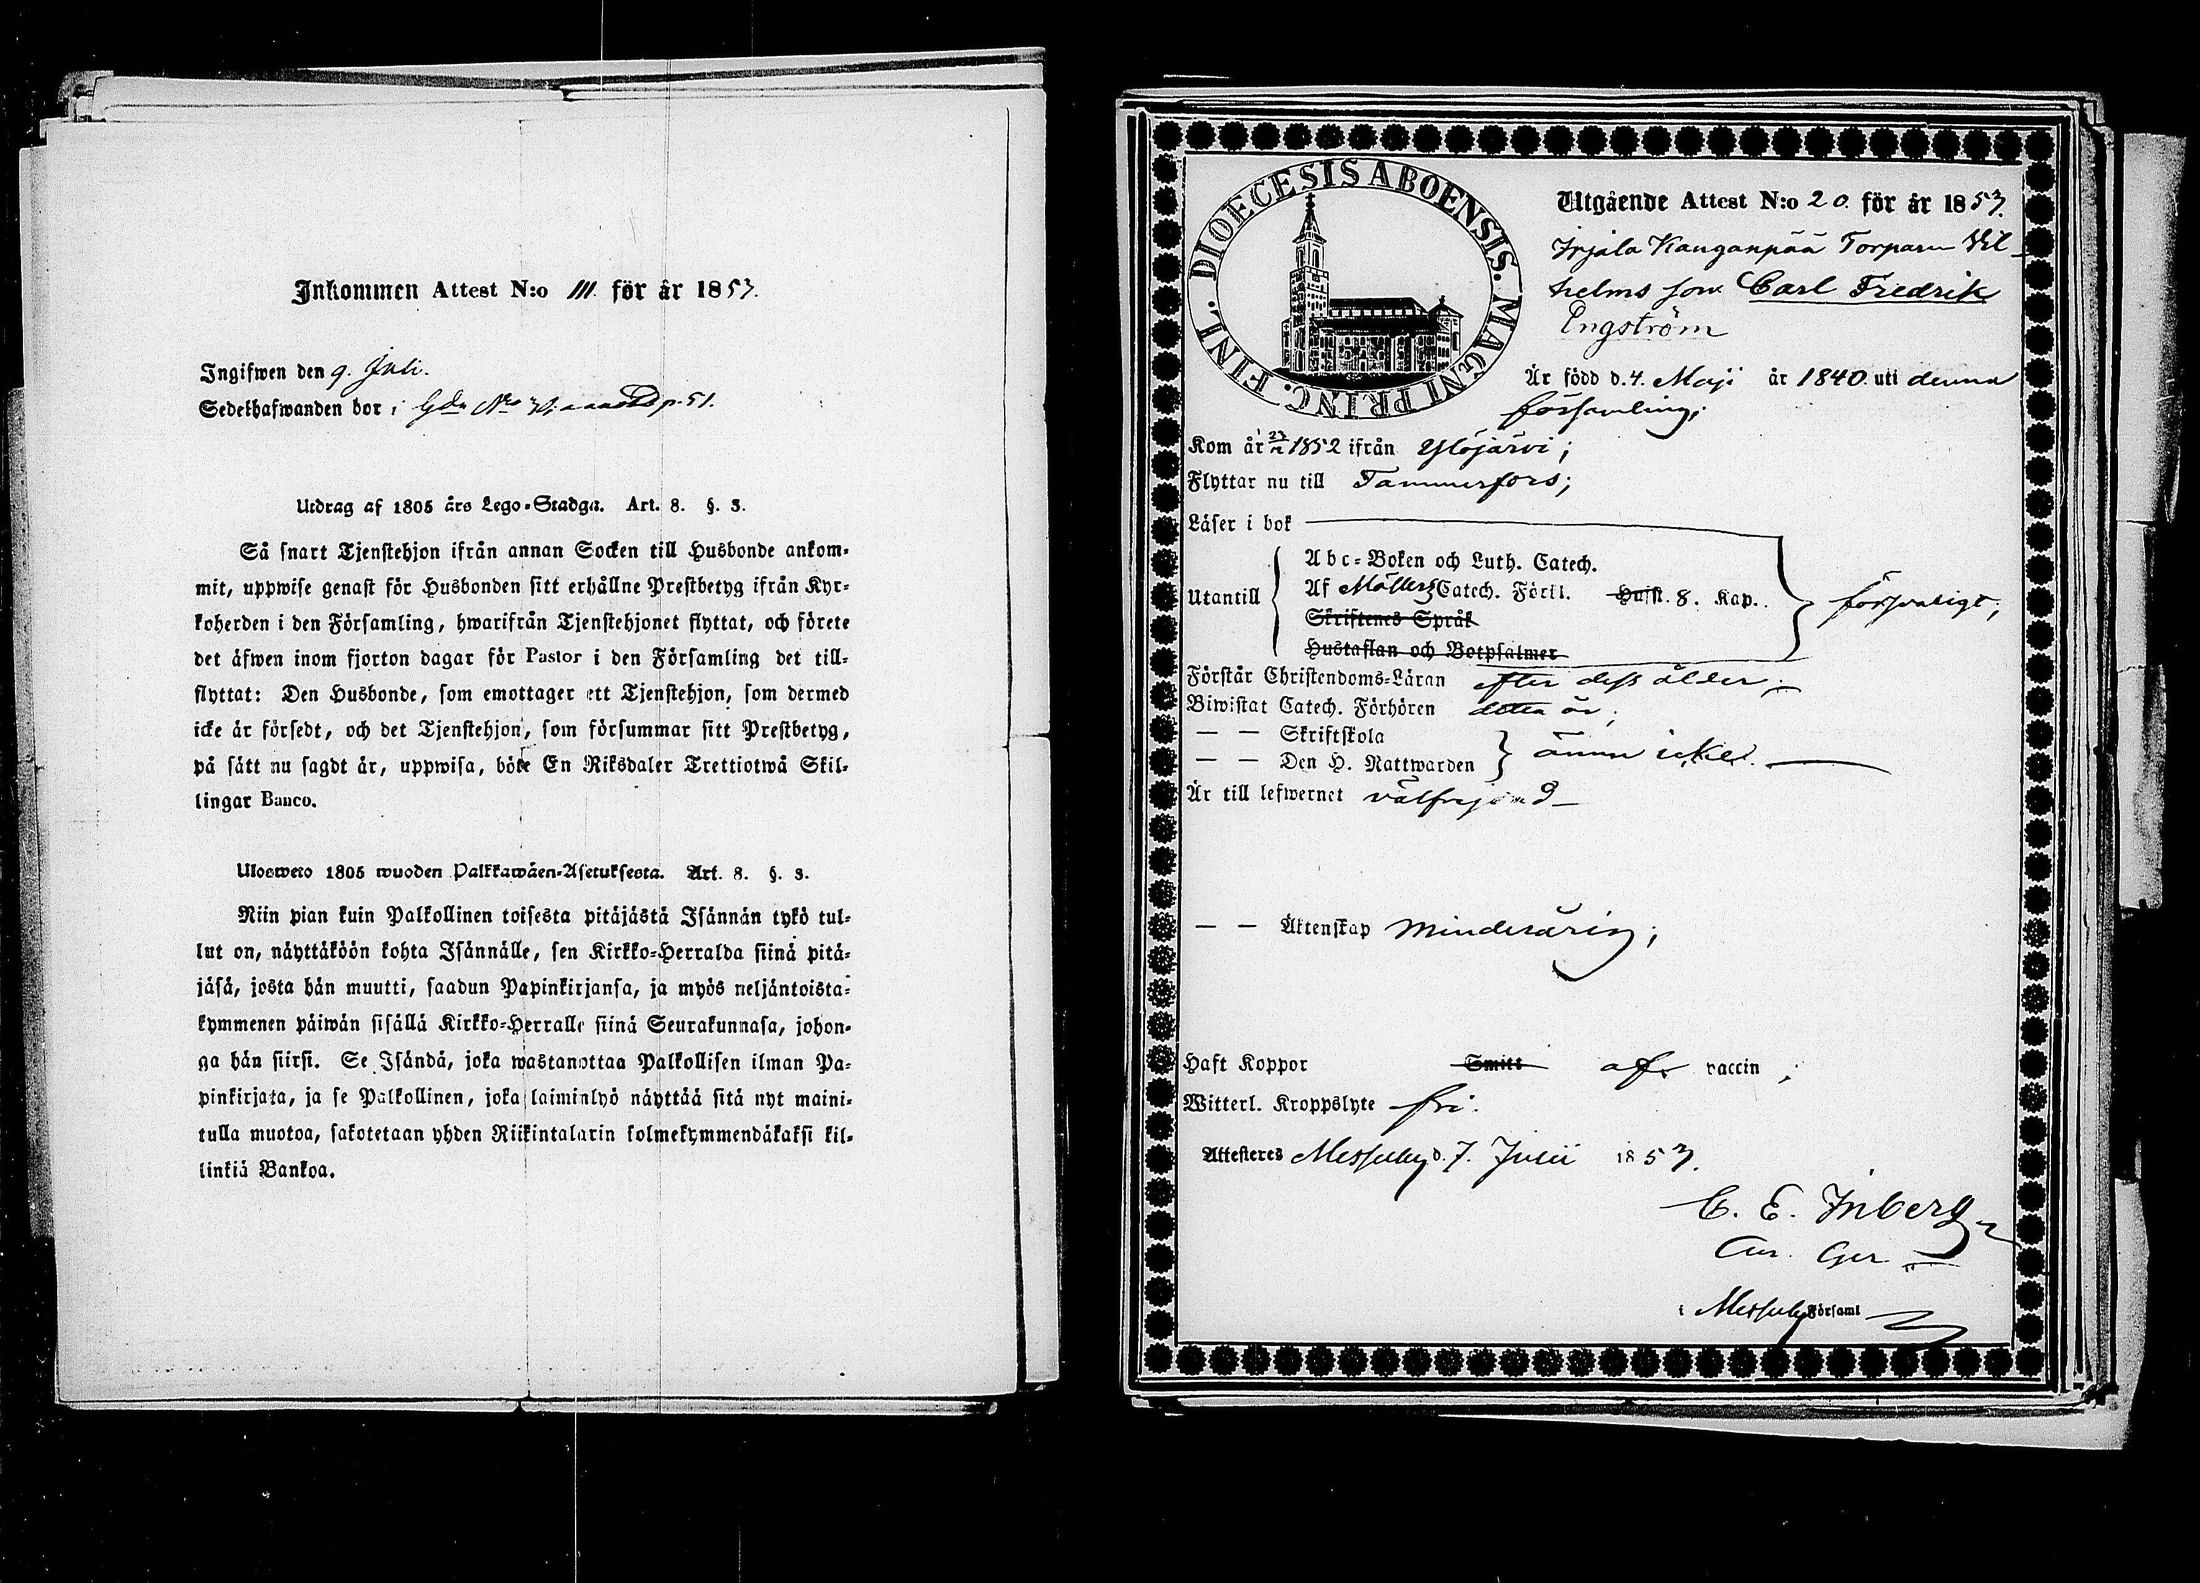 Inkommen Attest N:o 111. för år 1853.
Ingifwen den 9. Juli.
Sedelhafwanden bor i Gdn Nro p. 51.
Utdrag af 1805 års Lego-Stadga. Art. 8. §. 3.
Så snart Tjenstehjon ifrån annan Socken till Husbonde ankom-
mit, uppwise genast för Husbonden sitt erhållne Prestbetyg ifrån Kyr-
koherden i den Församling, hwarifrån Tjenstehjonet flyttat, och förete
det äfwen inom fjorton dagar för Pastor i den Församling det till-
flyttat: Den Husbonde, som emottager ett Tjenstehjon, som dermed
icke är försedt, och det Tjenstehjon, som försummar sitt Prestbetyg,
på sätt nu sagdt är, uppwisa, böte En Riksdaler Trettiotwå Skil-
lingar Banco.
Ulosweto 1805 wuoden Palkkawäen-Asetuksesta. Art. 8. §. 3.
Niin pian kuin Palkollinen toisesta pitäjästä Isännän tykö tul-
lut on, näyttäköön kohta Isännälle, sen Kirkko-Herralda siinä pitä-
jäsä, josta hän muutti, saadun Papinkirjansa, ja myös neljäntoista-
kymmenen päiwän sisällä Kirkko-Herralle siinä Seurakunnasa, johon-
ga hän siirsi. Se Isändä, joka wastanottaa Palkollisen ilman Pa-
pinkirjata, ja se Palkollinen, joka laiminlyö näyttää sitä nyt maini-
tulla muotoa, sakotetaan yhden Riikintalarin kolmekymmendäkaksi kil-
linkiä Bankoa.
DIOECESIS ABOENSIS. MAGNI PRINC. FINL.
Utgående Attest N:o 20. för år 1853.
Irjala Kauganpää Torparn Vil-
helms son Carl Fredrik
Engström
Är född d. 4. Maji år 1840. uti denna
församling;
Kom år 1852 ifrån Ylöjärvi;
Flyttar nu till Tammerfors;
Läser i bok
Abc-Boken och Luth. Catech.
Utantill Af Möllers Catech. Förkl. Hust. 8. Kap. försvarligt;
Skriftenes Språk
Hustaflan och Botpsalmer
Förstår Christendoms-Läran efter dess ålder;
Biwistat Catech. Förhören detta år;
— — Skriftskola
— — Den H. Nattwarden ännu icke.
Är till lefwernet välfrejdad
— — Äktenskap minderårig;
Haft Koppor Smitt af vaccin;
Witterl. Kroppslyte fri.
Attesteres Messuby d. 7. Julii 1853.
C. E. Inberg
Cur. Ger
i Messuby Församl